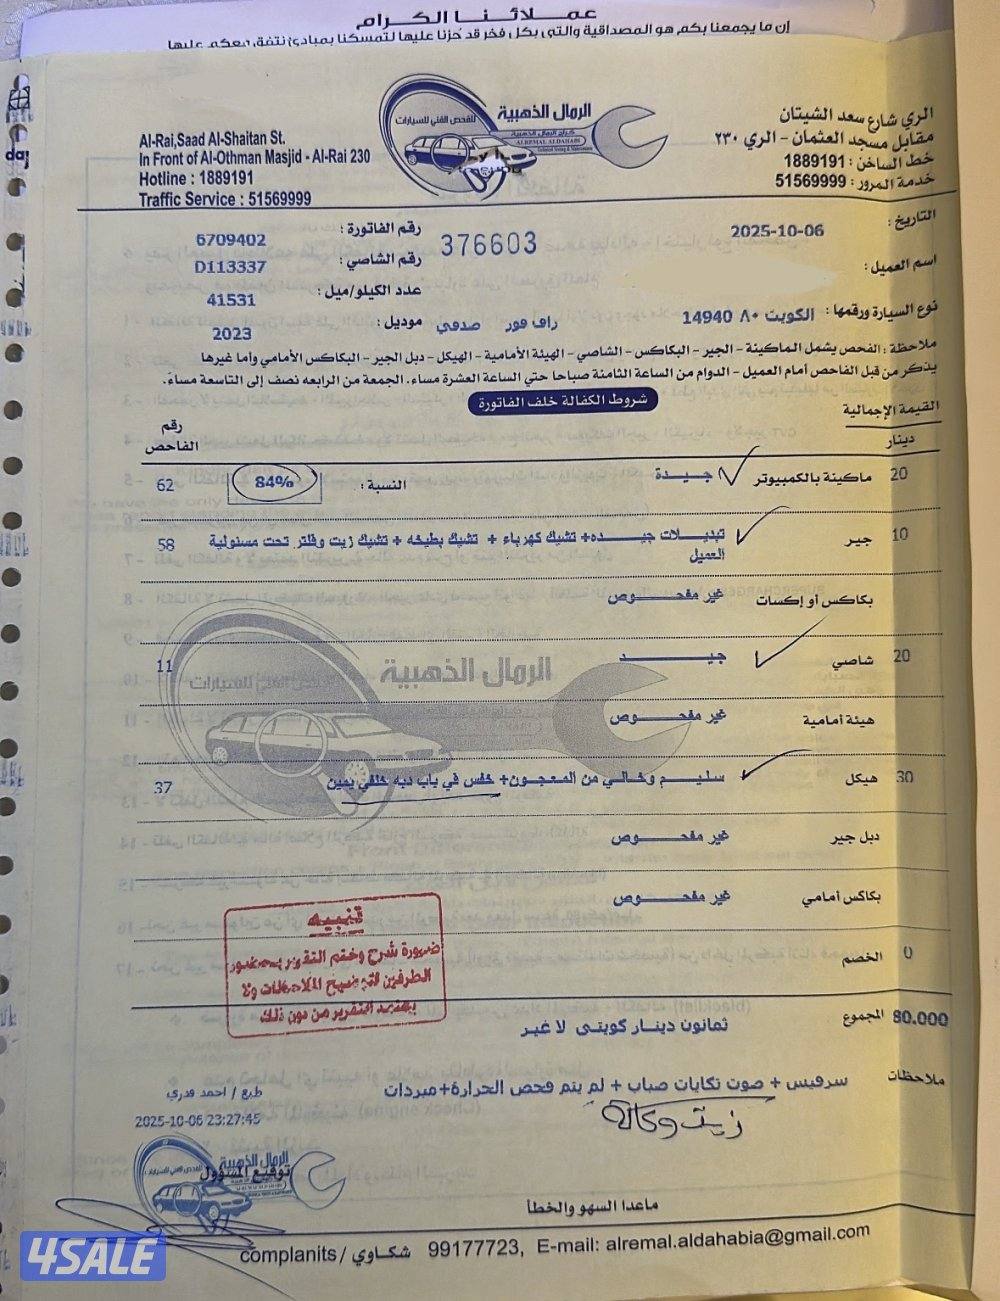 عملائنا الكرام
إن ما يجمعنا بكم هو المصداقية والتي بكل فخر قد حُزنا عليها لتمسكنا بمبادئ نتفق معكم عليها
Al-Rai,Saad Al-Shaitan St.
In Front of Al-Othman Masjid - Al-Rai 230
Hotline : 1889191
Traffic Service : 51569999
الرمال الذهبية
للفحص الفني للسيارات
كراج الرمال الذهبية
ALREMAL ALDAHABI
الري شارع سعد الشيتان
مقابل مسجد العثمان - الري ٢٣٠
خط الساخن : 1889191
خدمة المرور : 51569999
التاريخ : 2025-10-06
376603
رقم الفاتورة : 6709402
اسم العميل :
رقم الشاصي : D113337
عدد الكيلو/ميل : 41531
نوع السيارة ورقمها : الكويت ٨٠ 14940 راف فور صدفي
موديل : 2023
ملاحظة : الفحص يشمل الماكينة - الجير - البكاكس - الشاصي - الهيئة الأمامية - الهيكل - دبل الجير - البكاكس الأمامي وأما غيرها
يذكر من قبل الفاحص أمام العميل - الدوام من الساعة الثامنة صباحا حتي الساعة العشرة مساء. الجمعة من الرابعه نصف إلى التاسعة مساءً.
شروط الكفالة خلف الفاتورة
القيمة الإجمالية
دينار
رقم الفاحص
20 ماكينة بالكمبيوتر جيدة النسبة : 84% 62
10 جير تبديلات جيده+ تشيك كهرباء + تشيك بطيخه + تشيك زيت وفلتر تحت مسئولية 58
العميل
بكاكس أو إكسات غير مفحوص
20 شاصي جيد 11
الرمال الذهبية
للفحص الفني للسيارات
هيئة أمامية غير مفحوص
30 هيكل سليم وخالي من المعجون+ خفس في باب دبه خلفي يمين 37
دبل جير غير مفحوص
بكاكس أمامي غير مفحوص
تنبيه
ضرورة شرح وختم التقرير بحضور
الطرفين لتوضيح الملاحظات ولا
يعتمد التقرير من دون ذلك
0 الخصم
80.000 المجموع ثمانون دينار كويتى لا غير
ملاحظات سرفيس + صوت تكايات صباب + لم يتم فحص الحرارة+ مبردات
زيت وكالة
طبع / احمد قدري
2025-10-06 23:27:45
الرمال الذهبية
توقيع المسؤول
ماعدا السهو والخطأ
complanits / شكاوي 99177723, E-mail: alremal.aldahabia@gmail.com
4SALE